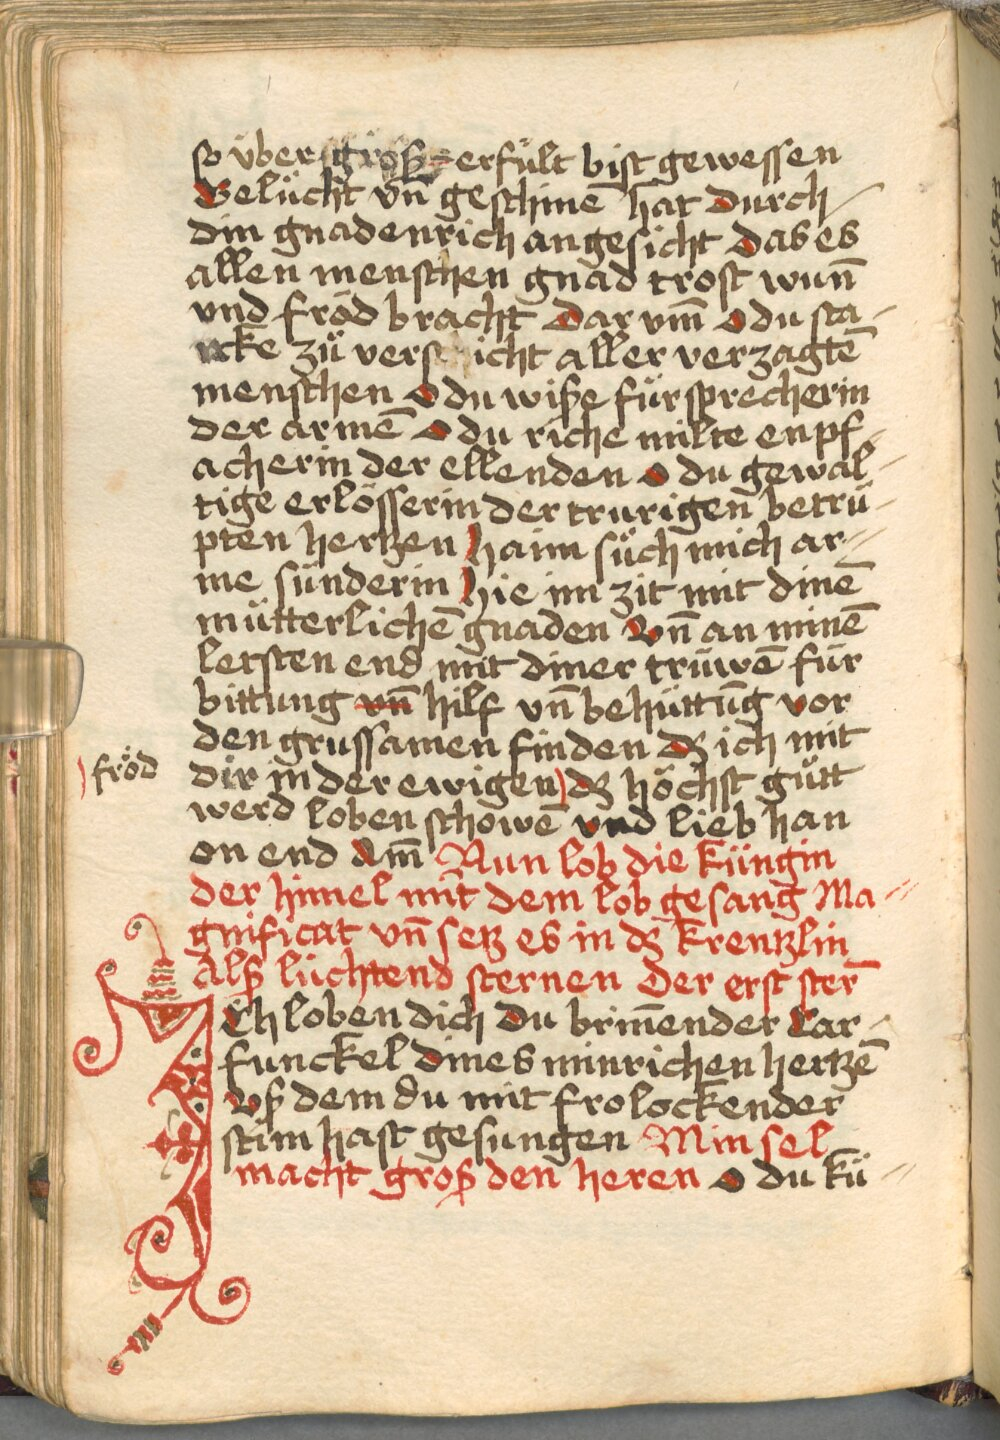 so über groß erfült bist gewessen
Belücht vn̄ geschinē hat durch
din gnadenrich angesicht das es
allen menschen gnad trost wun̄
vnd fröd bracht Dar vm̄ O du sta-
rcke zů versicht aller verzagtē
menschen O du wiße fürsprecherin
der armē O du riche milte enpf-
acherin der ellenden O du gewal-
tige erlösserin der trurigen betrü-
pten hertzen haim sůch mich ar-
me sünderin hie im zit mit dinē
mütterlichē gnaden Vn̄ an minē
lersten end mit diner trüwē für
bittung vn̄ hilf vn̄ behüttūg vor
den grussamen finden dz ich mit
fröd
dir in der ewigen dz höchst gůtt
werd loben schowē vnd lieb han
on end Am̄ Nun lob die küngin
der himel mit dem lob gesang Ma-
gnificat vn̄ setz es in dz krentzlin
Alß lüchtend sternen Der erst ster̄
Ich loben dich Du brin̄ender Car-
funckel dines minrichen hertzē
Vß dem du mit frolockender
stim hast gesungen Min sel
macht groß den heren O du kü-